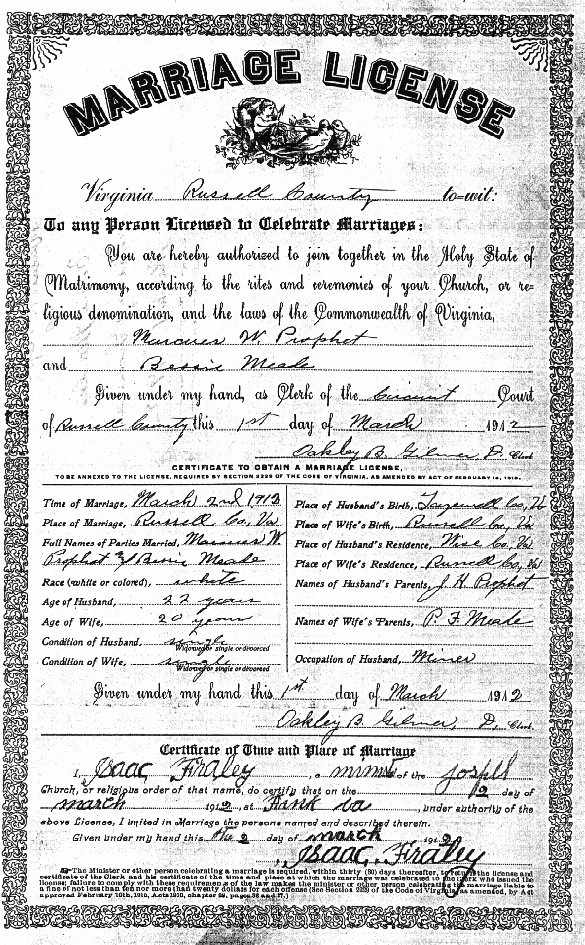 MARRIAGE LICENSE
Virginia Russell County to-wit:
To any Person Licensed to Celebrate Marriages:
You are hereby authorized to join together in the Holy State of
Matrimony, according to the rites and ceremonies of your Church, or re-
ligious denomination, and the laws of the Commonwealth of Virginia,
Marcues W. Prophet
and Bessie Meade
Given under my hand, as Clerk of the Circuit Court
of Russell County this 1st day of March 1912
Oakley B. Gilmer, D. Clerk
CERTIFICATE TO OBTAIN A MARRIAGE LICENSE,
TO BE ANNEXED TO THE LICENSE, REQUIRED BY SECTION 2229 OF THE CODE OF VIRGINIA, AS AMENDED BY ACT OF FEBRUARY
Time of Marriage, March 2nd 1912
Place of Marriage, Russell Co, Va
Full Names of Parties Married, Marcues W.
Prophet & Bessie Meade
Race (white or colored), white
Age of Husband, 22 years
Age of Wife, 20 years
Condition of Husband, single
Widowed or single or divorced
Condition of Wife, single
Widowed or single or divorced
Place of Husband's Birth, Tazewell Co, Va
Place of Wife's Birth, Russell Co, Va
Place of Husband's Residence, Wise Co, Va
Place of Wife's Residence, Russell Co, Va
Names of Husband's Parents, J. H. Prophet
Names of Wife's Parents, P. F. Meade
Occupation of Husband, Miner
Given under my hand this 1st day of March 1912
Oakley B. Gilmer, D. Clerk.
Certificate of Time and Place of Marriage
I, Isaac Fraley, a minist of the
Church, or religious order of that name, do certify that on the 2 day of
march 1912, at va, under authority of the
above License, I united in Marriage the persons named and described therein.
Given under my hand this 2 day of march 1912
Isaac Fraley
The Minister or other person celebrating a marriage is required, within thirty (30) days thereafter, to return the license and
certificate of the Clerk and his certificate of the time and place at which the marriage was celebrated to the Clerk who issued the
license; failure to comply with these requirements of the law makes the minister or other person celebrating the marriage liable to
a fine of not less than ten or more than twenty dollars for each offense (See Section 2229 of the Code of Virginia, as amended, by Act
approved February